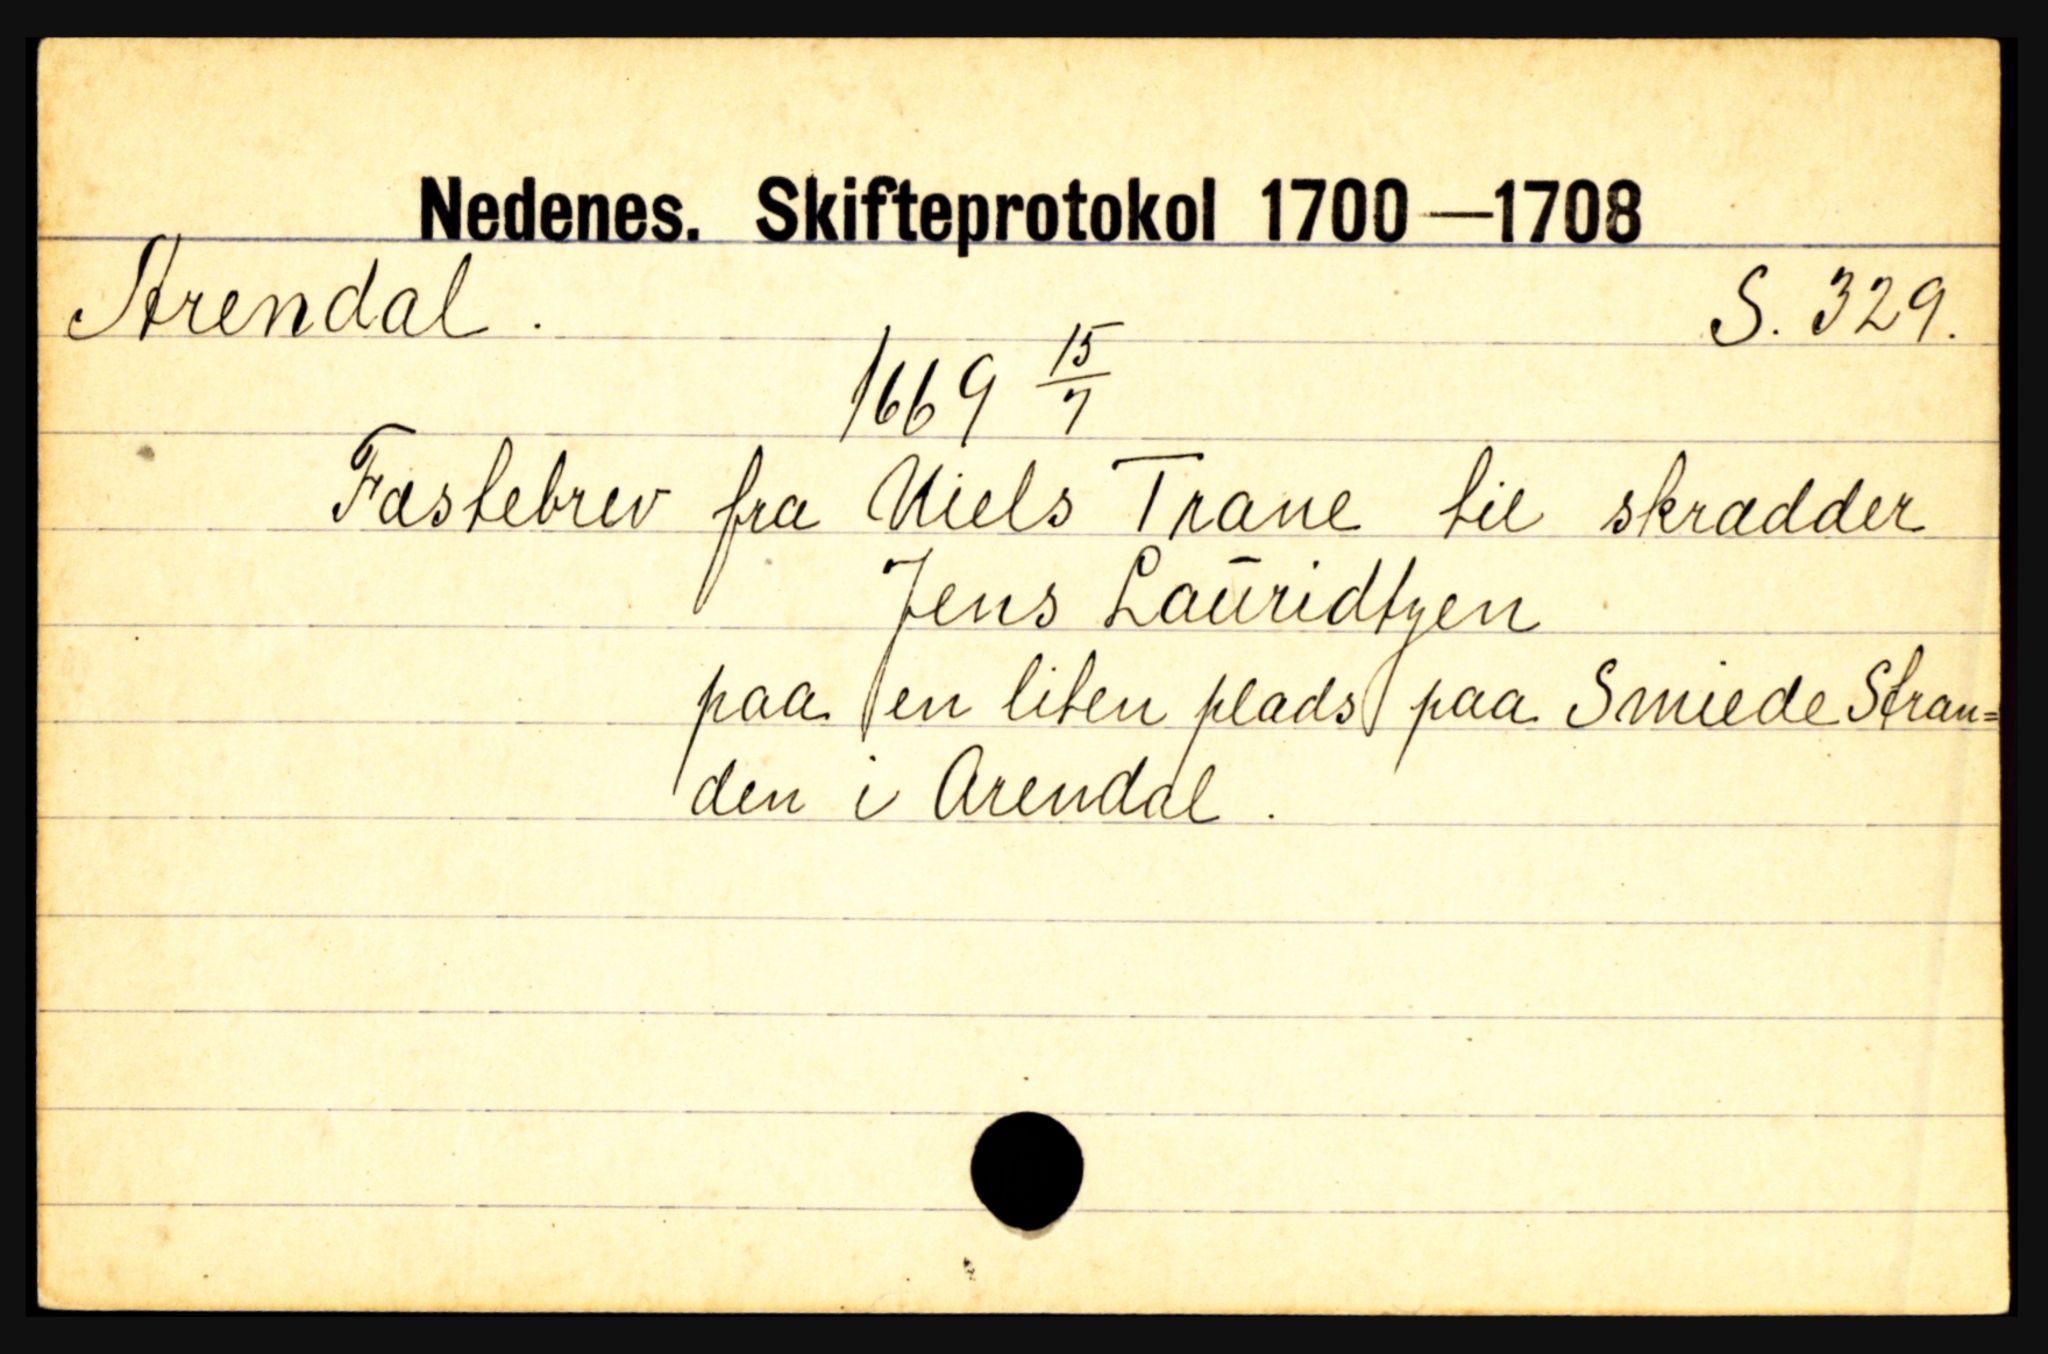 Nedenes. Skifteprotokol 1700—1708
Arendal. S. 329.
1669 15/7
Fæstebrev fra Niels Trane til skrædder
Jens Lauridtzen
paa en liten plads paa Smiede Stran=
den i Arendal.